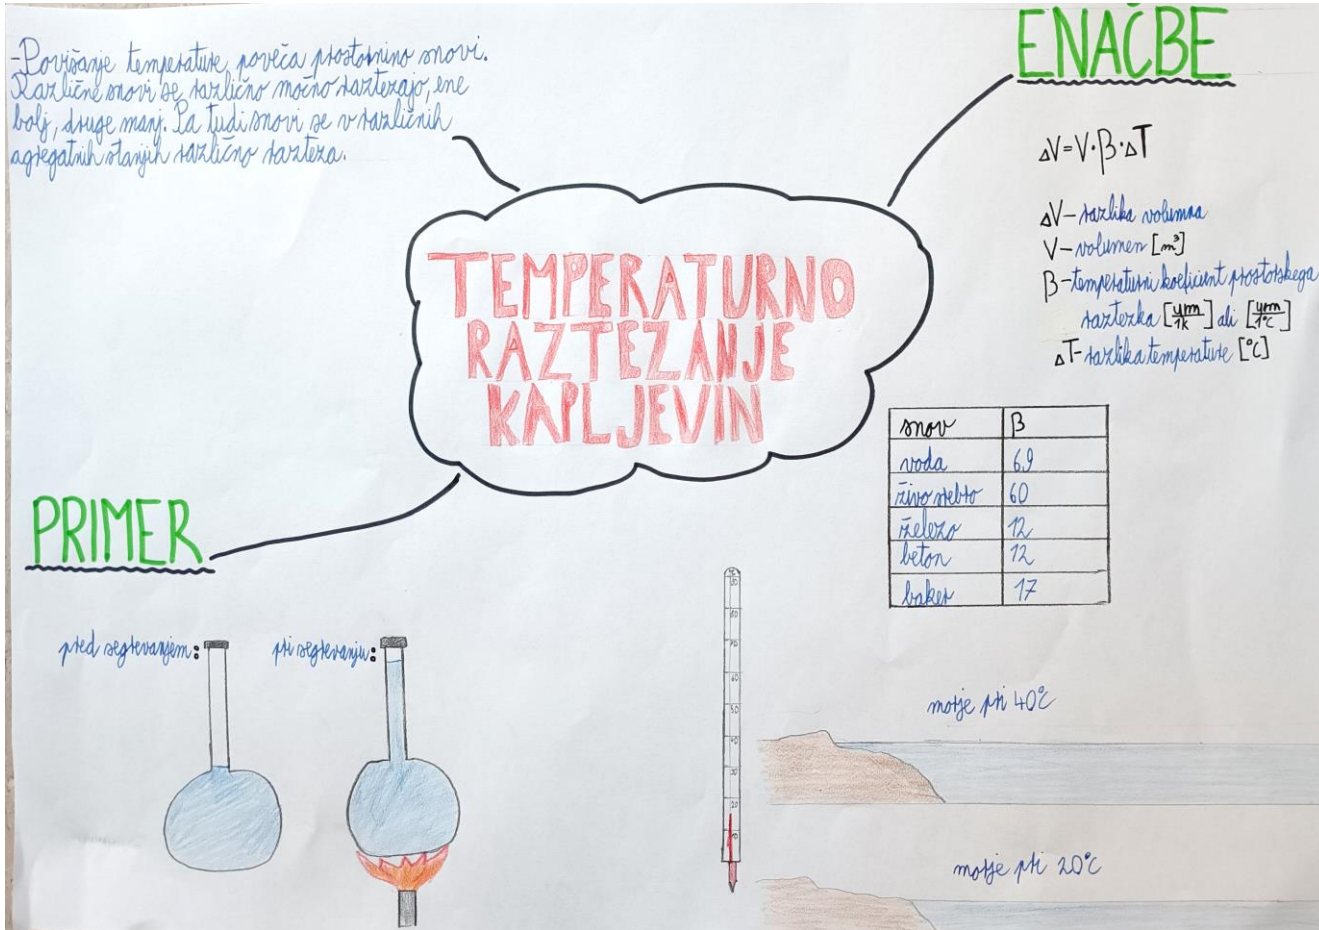 -Povišanje temperature poveča prostornino snovi.
Različne snovi se različno močno raztezajo, ene
bolj, druge manj. Pa tudi snovi se v različnih
agregatnih stanjih različno razteza.
ENAČBE
ΔV=V·β·ΔT
ΔV-razlika volumna
V-volumen [m³]
β-temperaturni koeficient prostorskega
raztezka [μm/1K] ali [μm/1°C]
ΔT-razlika temperature [°C]
TEMPERATURNO
RAZTEZANJE
KAPLJEVIN
snov β
voda 69
živo srebro 60
železo 12
beton 12
baker 17
PRIMER
pred segrevanjem:
pri segrevanju:
°C
80
70
60
50
40
30
20
10
morje pri 40°C
morje pri 20°C